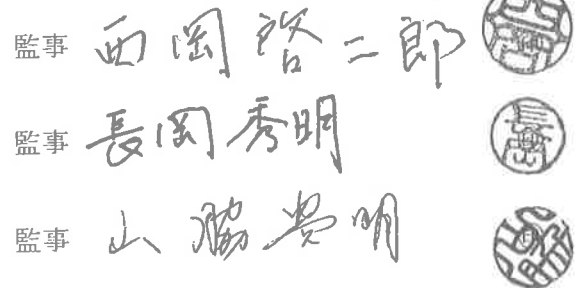 監事 西岡啓二郎
監事 長岡秀明
監事 山脇貴明